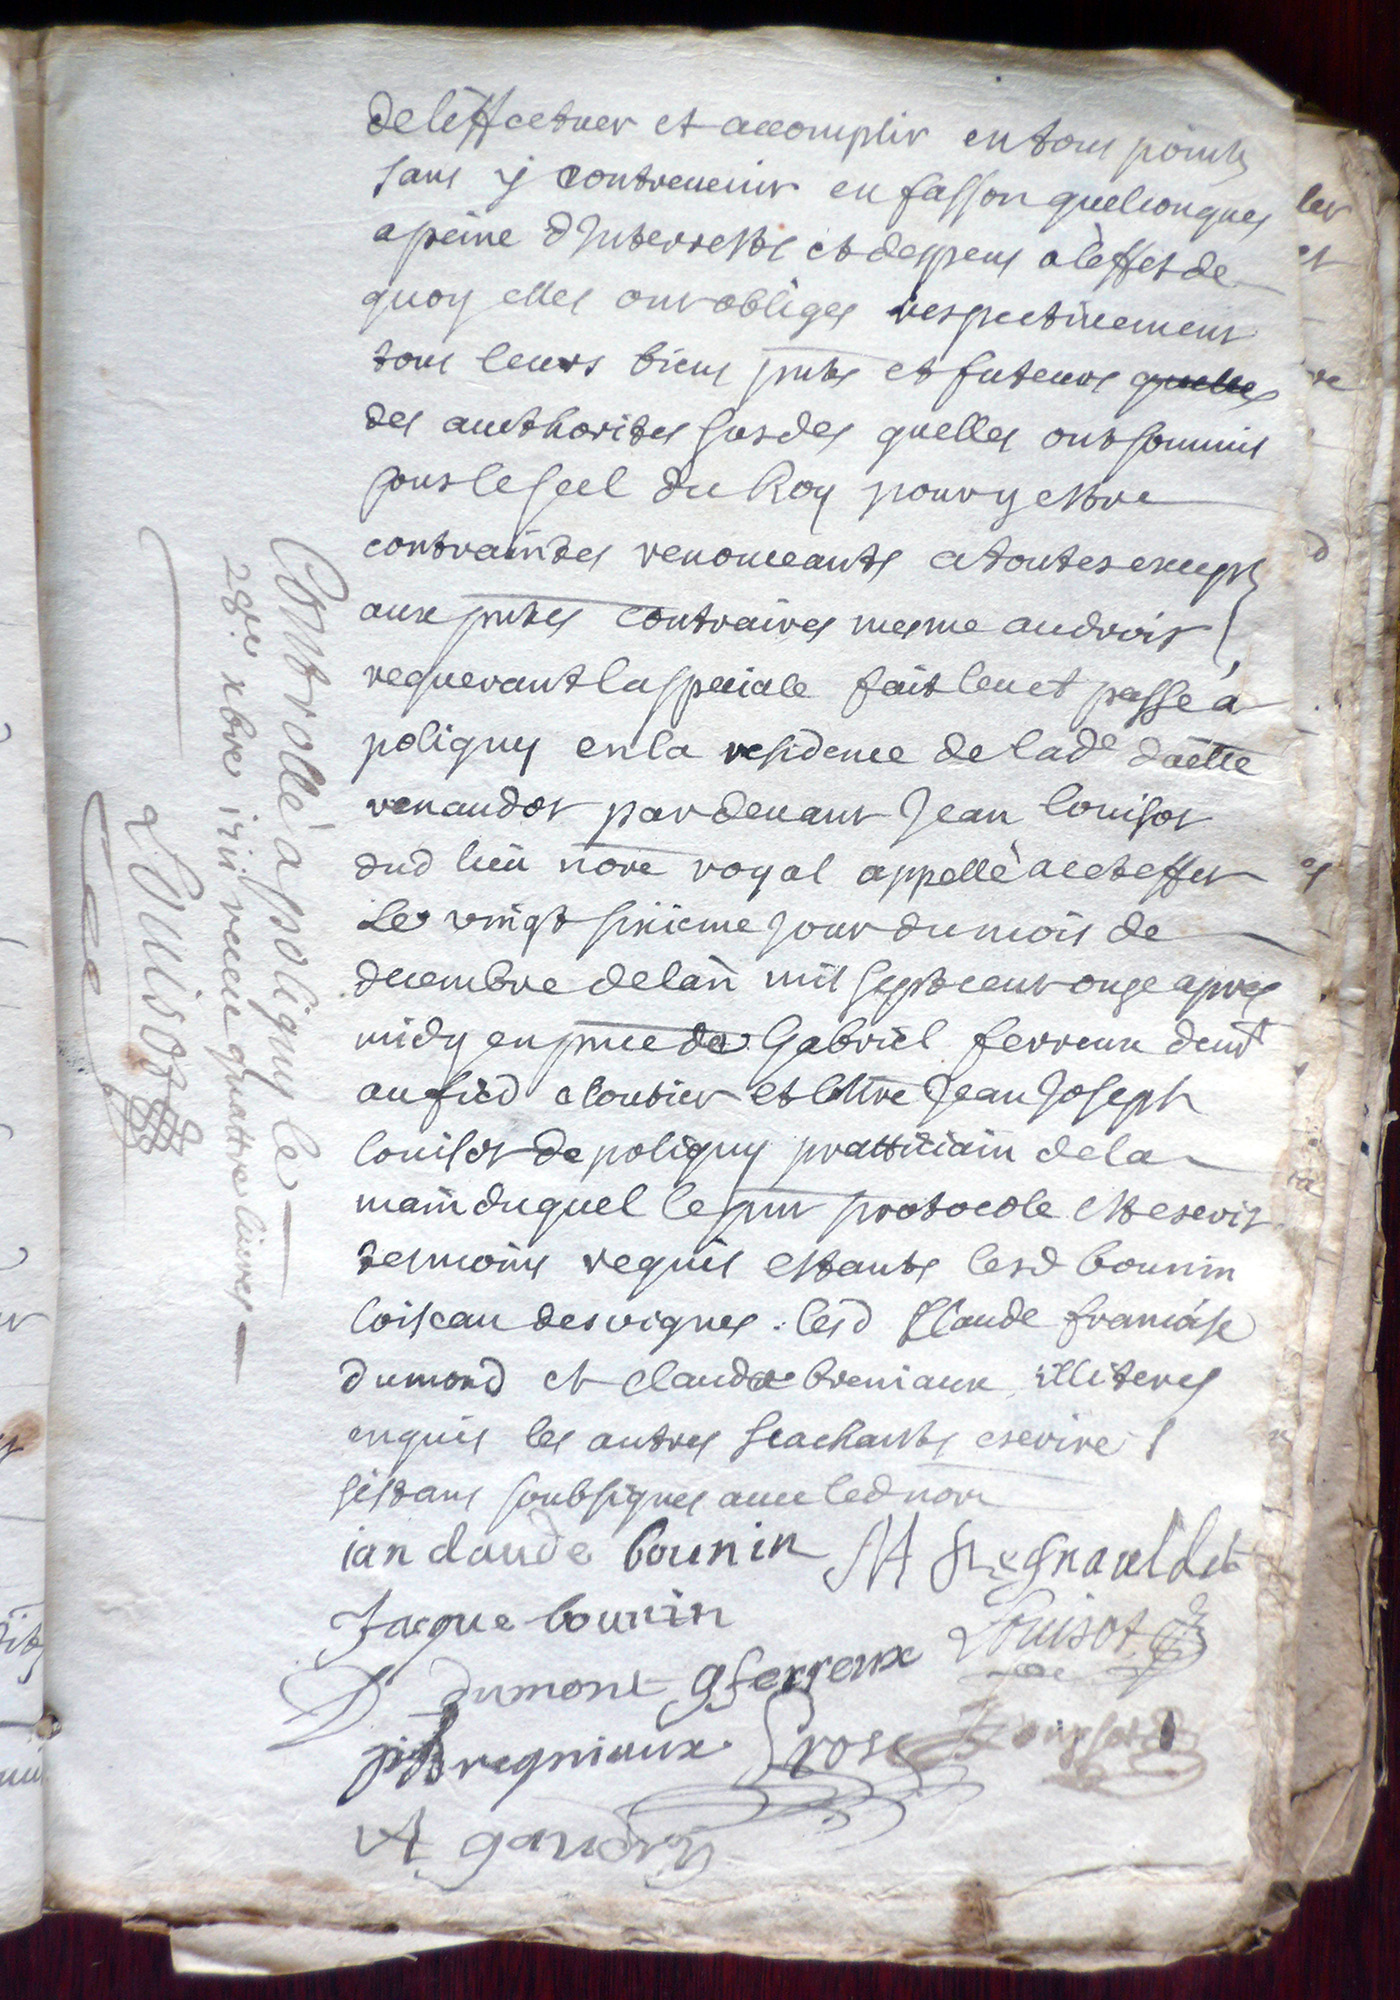 de leffectuer et accomplir en tous points
sans y contrevenir en fasson quelconques
a peine dInterrests et despens a leffet de
quoy elles ont obligés respectivement
tous leurs biens pnts et futeurs quelles
des aucthorités susdes quelles ont soumis
sous le scel du Roy pour y estre
contraintes renonceants a toutes except
aux pntes contraires mesme au droit
requerant la speciale fait leu et passé a
poligny en la residence de lade daelle
renaudot par devant Jean Louisot
dud lieu nore royal appellé a cet effet
Le vingt sixieme jour du mois de
decembre de lan mil sept cent onze apres
midy en pnce de Gabriel ferreux demt
aufied cloutier et Jean Joseph
Louisot de poligny pratticiain de la
main duquel le pnt protocole est escrit
tesmoins requis estants lesd bounin
loiseau desvignes lesd Claude francoise
dumond et claude breniaux illiteres
enquis les autres scachants escrire
se sont soubsignés avec led nore
ian claude bounin M Regnauldot
Jacque bounin Louisot
D dumont g ferreux
bregniaux Gros Louisot
A gaudry
Controllé a poligny le
28e xbre 1711 receu quattre livres
Louisot